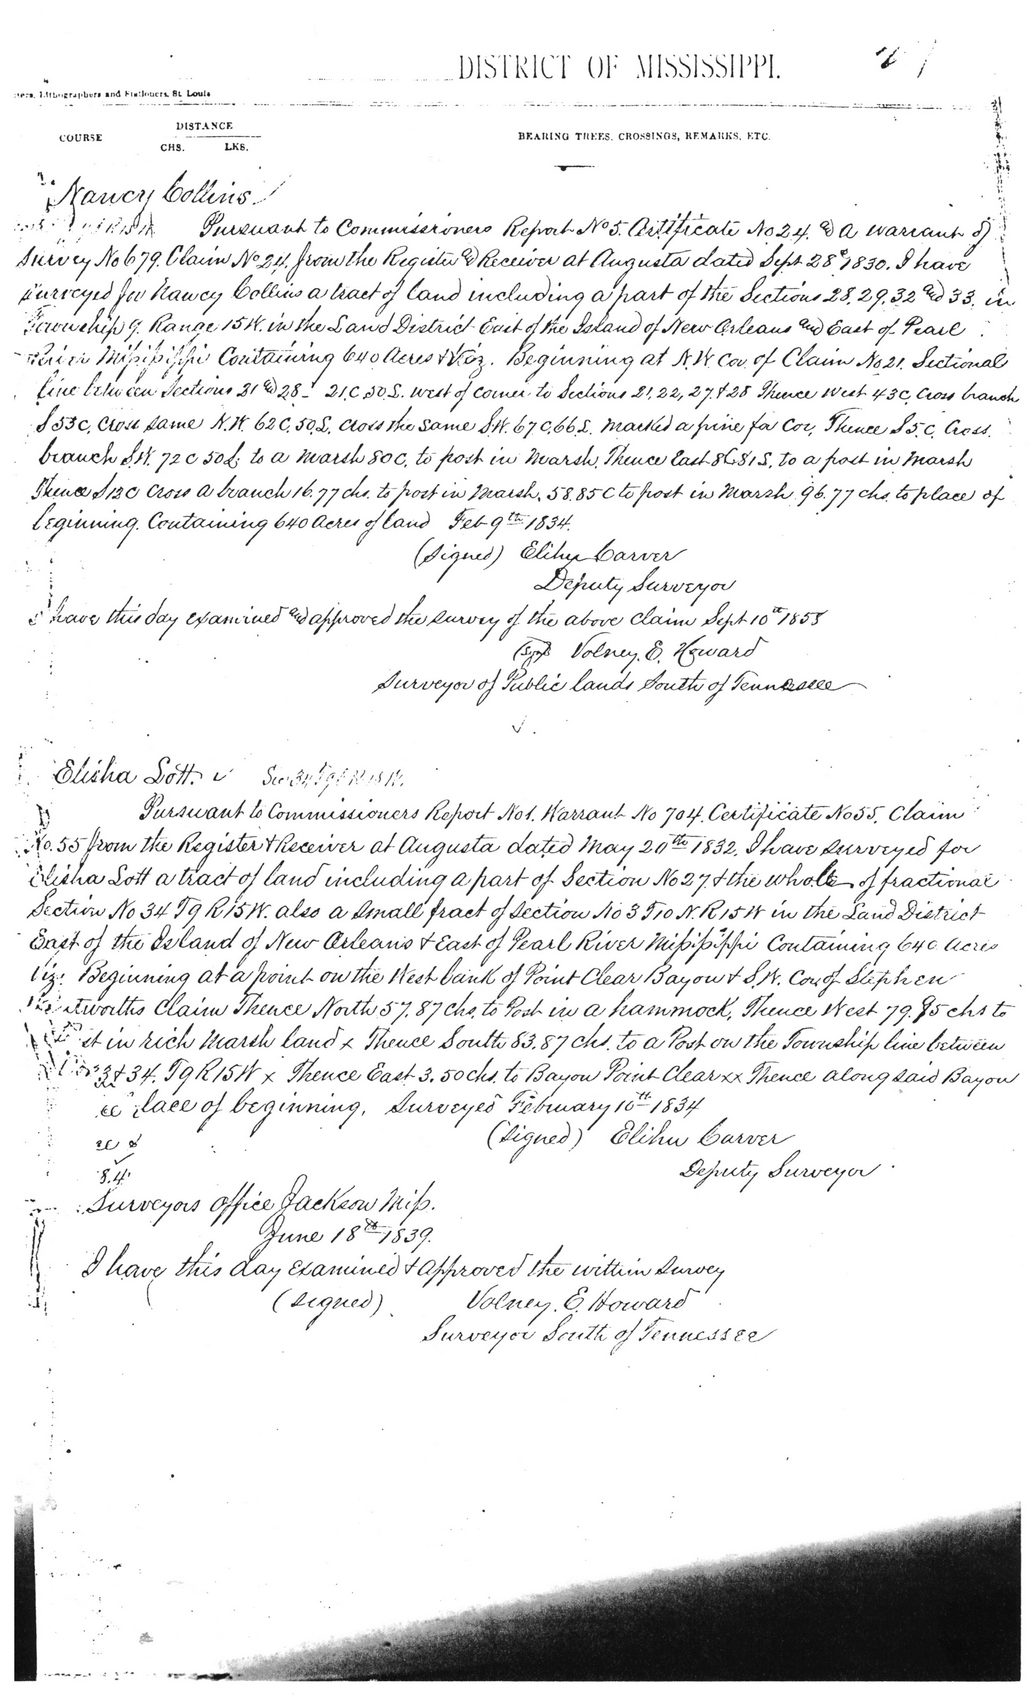 DISTRICT OF MISSISSIPPI.
Lithographers and Stationers, St. Louis
COURSE DISTANCE BEARING TREES, CROSSINGS, REMARKS, ETC.
CHS. LKS.
Nancy Collins.
Pursuant to Commissioners Report No 5. Certificate No 24. and a warrant of
Survey No 679. Claim No 24. from the Register and Receiver at Augusta dated Sept 28th 1830. I have
surveyed for Nancy Collins a tract of land including a part of the Sections 28, 29, 32 and 33. in
Township 9. Range 15 W. in the Land District East of the Island of New Orleans and East of Pearl
River Mississippi Containing 640 Acres & Viz. Beginning at N.W. Cor. of Claim No 21. Sectional
line between Sections 21 and 28 - 21 C, 50, L. west of corner to Sections 21, 22, 27, & 28 Thence West 43 C, Cross branch
S 53 C, Cross same N.W. 62 C, 50, L. Cross the same S.W. 67 C, 66 L. marked a pine for Cor. Thence S 5. C, Cross.
branch S.W. 72 C 50 L; to a marsh 80 C, to post in marsh. Thence East 81 S. to a post in marsh
Thence S 12 C Cross a branch 16.77 chs. to post in Marsh, 58.85 C to post in marsh 96.77 chs. to place of
beginning. Containing 640 acres of land Feb 9th 1834.
(Signed) Elihu Carver
Deputy Surveyor
I have this day examined and approved the survey of the above claim Sept 10th
(Sign) Volney. E. Howard
Surveyor of Public lands South of Tennessee
Elisha Lott. Sec 34 T 9 R 15 W.
Pursuant to Commissioners Report No 1. Warrant No 704. Certificate No 55. Claim
No. 55 from the Register & Receiver at Augusta dated May 20th 1832. I have surveyed for
Elisha Lott a tract of land including a part of Section No 27 & the whole of fractional
Section No 34 T 9 R 15 W. also a small fract of section No 3 T 10 N. R 15 W in the Land District
East of the Island of New Orleans & East of Pearl River Mississippi Containing 640 acres
Viz: Beginning at a point on the West bank of Point Clear Bayou & S.W. Cor of Stephen
Claim Thence North 57.87 chs. to Post in a hammock, Thence West 79.85 chs to
in rich Marsh land x Thence South 83.87 chs. to a Post on the Township line between
3 & 34. T 9 R 15 W x Thence East 3.50 chs. to Bayou Point Clear xx Thence along said Bayou
place of beginning, Surveyed February 10th 1834
(Signed) Elihu Carver
Deputy Surveyor
Surveyors office Jackson Miss.
June 18th 1839.
I have this day examined & approved the within survey
(Signed) Volney. E. Howard
Surveyor South of Tennessee